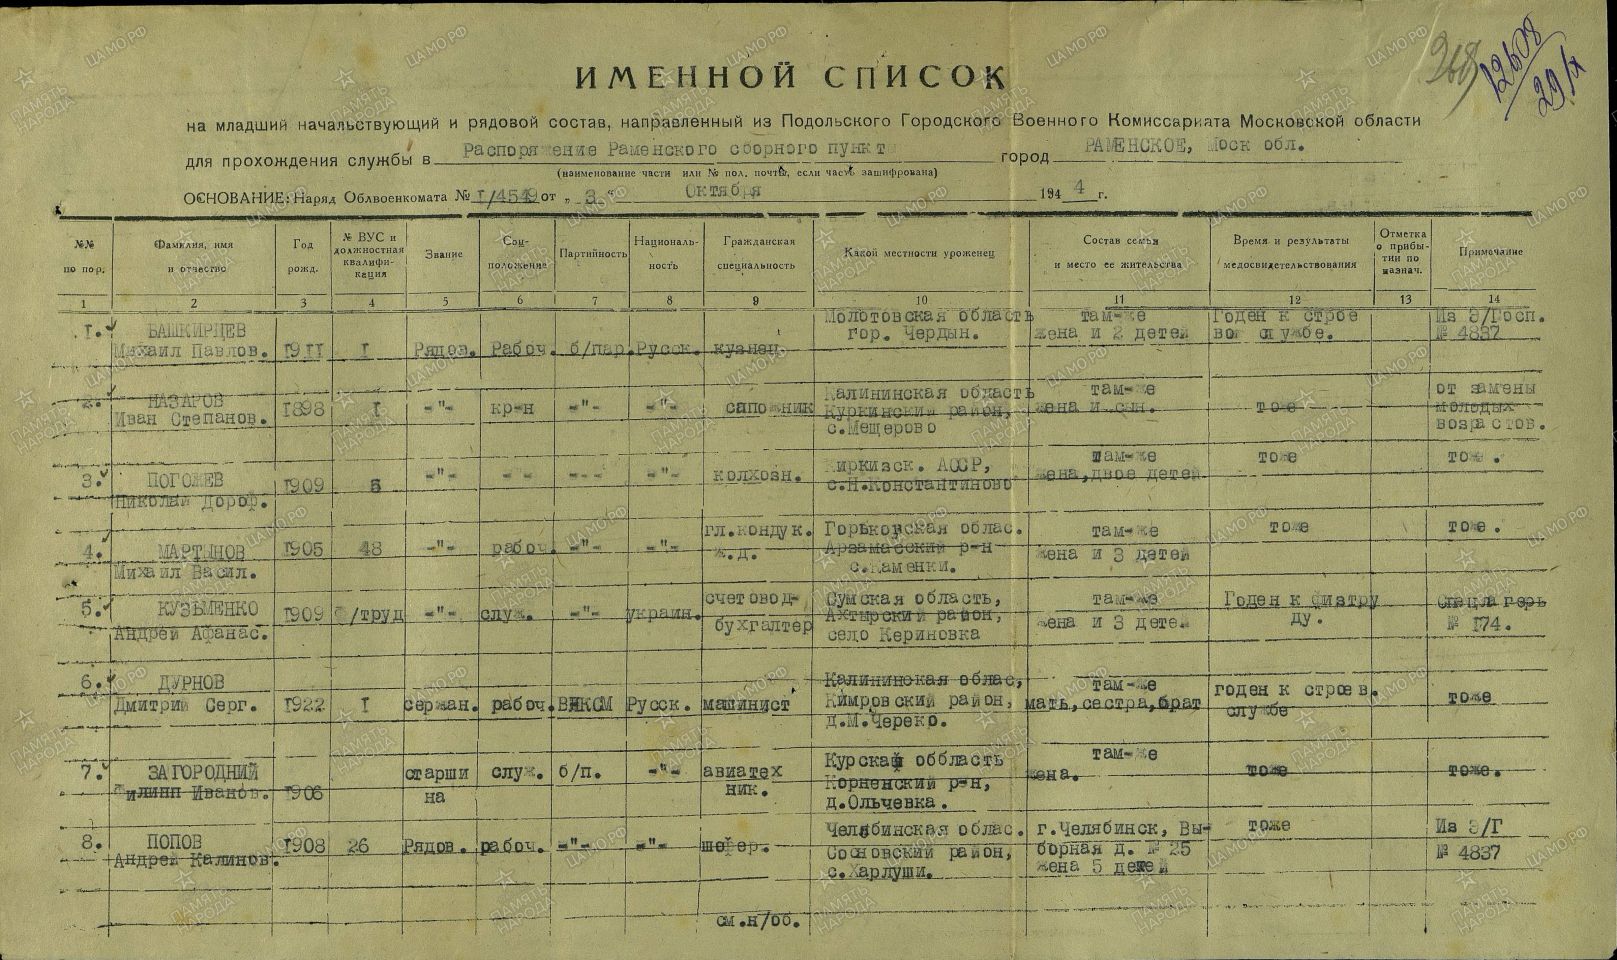 12608
29/X
ИМЕННОЙ СПИСОК
на младший начальствующий и рядовой состав, направленный из Подольского Городского Военного Комиссариата Московской области
для прохождения службы в Распоряжение Раменского сборного пункт город РАМЕНСКОЕ, Моск обл.
(наименование части или № пол. почты, если часть зашифрована)
ОСНОВАНИЕ: Наряд Облвоенкомата № I/4549 от „ 3 “ Октября 1944 г.
№№ по пор. Фамилия, имя и отчество Год рожд. № ВУС и должностная квалифи-кация Звание Соц-положение Партийность Националь-ность Гражданская специальность Какой местности уроженец Состав семьи и место ее жительства Время и результаты медосвидетельствования Отметка о прибы-тии по назнач. Примечание
1 2 3 4 5 6 7 8 9 10 11 12 13 14
I. БАШКИРЦЕВ Молотовская область там-же Годен к строе Из Э/Госп.
гор. Чердын. жена и 2 детей вой службе. № 4837
Михаил Павлов. 1911 I Рядов. Рабоч. б/пар. Русск. кузнец
2. НАЗАРОВ Калининская область там-же от замены
Иван Степанов. 1898 I -"- кр-н -"- -"- сапожник Куркинский район, жена и сын. тоже молодых
с.Мещерово возрастов.
3. ПОГОЖЕВ Киркизск. АССР, там-же тоже тоже.
Николай Дороф. 1909 5 -"- - - --- -"- колхозн. с.Н.Константиново жена,двое детей
гл.кондук. Горьковская облас. там-же тоже тоже.
4. МАРТЫНОВ 1905 48 -"- рабоч. -"- -"- ж.д. Арзамасский р-н жена и 3 детей
Михаил Васил. с.Каменки.
5. КУЗЬМЕНКО счетовод- Сумская область, там-же Годен к физтру Спецлагерь
1909 /труд -"- служ. -"- украин. бухгалтер Ахтырский район, жена и 3 дете. ду. № 174.
Андрей Афанас. село Кериновка
6. ДУРНОВ Калининская облас, там-же годен к строев. тоже
Дмитрий Серг. 1922 I сержан. рабоч. ВЛКСМ Русск. машинист Кимровский район, мать,сестра,брат службе
д.М.Череко.
7. ЗАГОРОДНИЙ старши служ. б/п. -"- авиатех Курская оббласть там-же тоже тоже.
Филипп Иванов. 1906 на ник. Корненский р-н, жена.
д.Ольчевка.
8. ПОПОВ 1908 26 Рядов. рабоч. -"- -"- шофер. Челябинская облас. г.Челябинск, Вы- тоже Из Э/Г
Андрей Калинов. Сосновский район, борная д. № 25 № 4837
с.Харлуши. жена 5 детей
см.н/об.
ПАМЯТЬ НАРОДА
ЦАМО.РФ